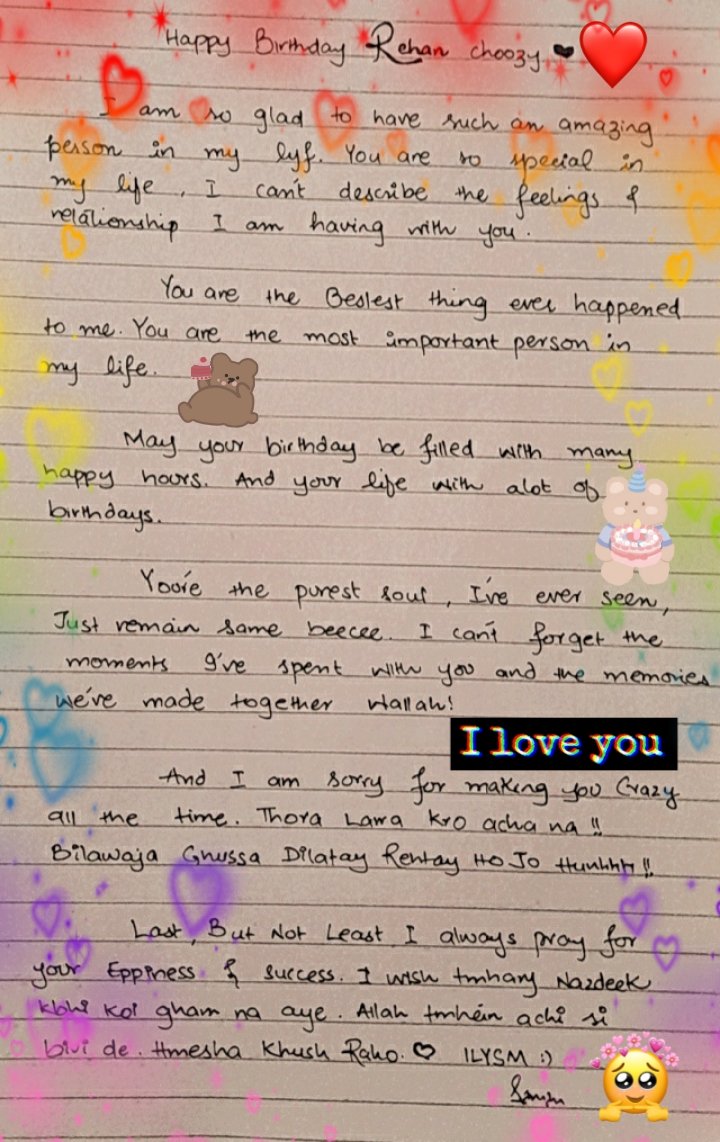 Happy Birthday Rehan choozy
I am so glad to have such an amazing
person in my lyf. You are so special in
my life, I can't describe the feelings &
relationship I am having with you.
You are the Bestest thing ever happened
to me. You are the most important person in
my life.
May your birthday be filled with many
happy hours. And your life with alot of
birthdays.
You're the purest soul, I've ever seen,
Just remain same beecee. I can't forget the
moments I've spent with you and the memories
we've made together Wallah!
I love you
And I am sorry for making you Crazy
all the time. Thora Lawa kro acha na !!
Bilawaja Ghussa Dilatay Rehtay Ho Jo Hunhhh !!
Last, But Not Least I always pray for
your Eppiness & success. I wish tmhary Nazdeek
kbhi koi gham na aye. Allah tmhein achi si
bivi de. Hmesha Khush Raho. ♡ ILYSM :)